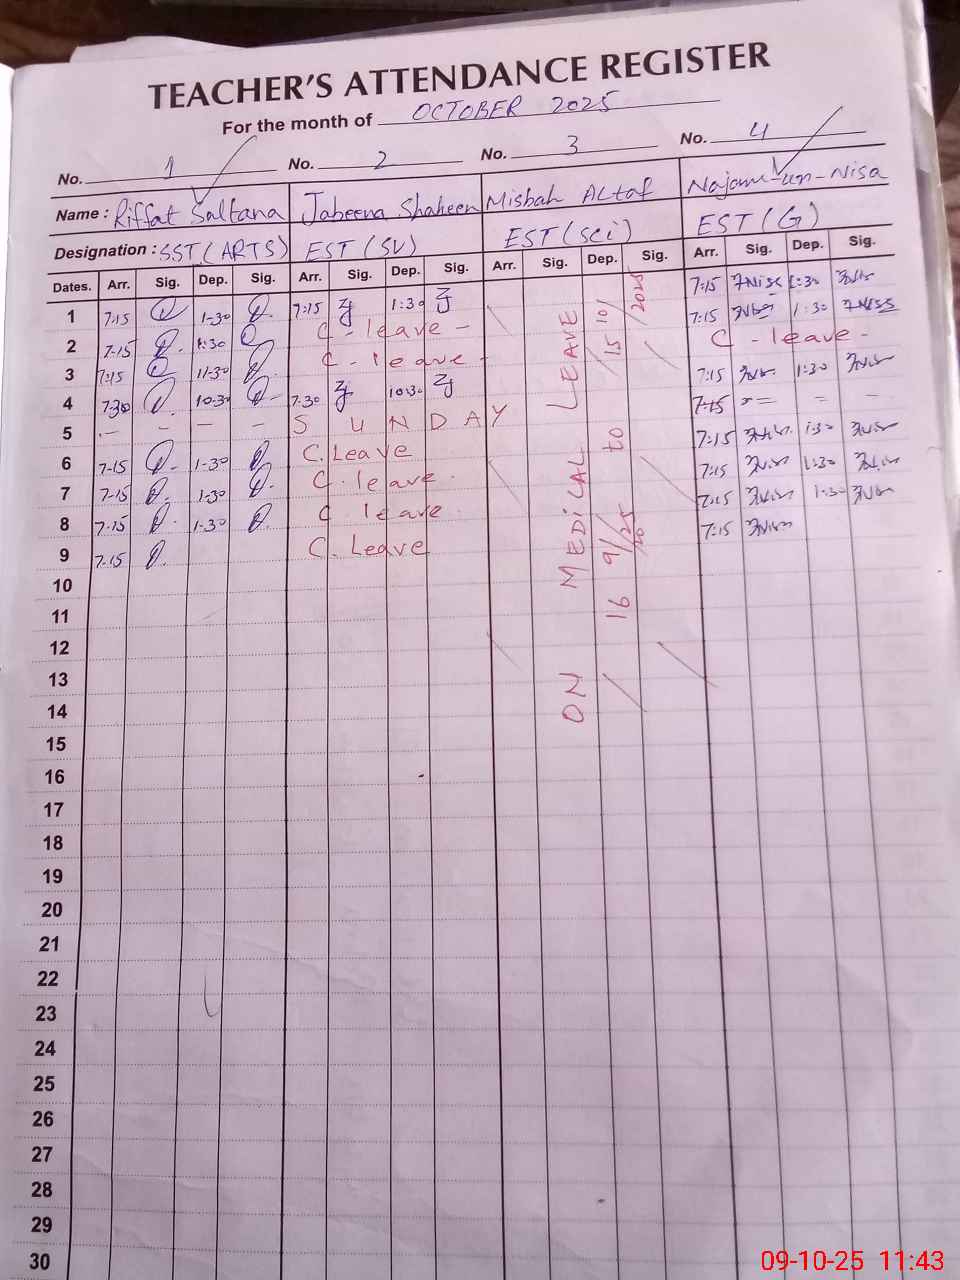 TEACHER'S ATTENDANCE REGISTER
For the month of OCTOBER 2025
No. 1 No. 2 No. 3 No. 4
Name : Riffat Saltana Jabeena Shaheen Misbah Altaf Najam-un-Nisa
Designation : SST (ARTS) EST (SV) EST (Sci) EST (G)
Dates. Arr. Sig. Dep. Sig. Arr. Sig. Dep. Sig. Arr. Sig. Dep. Sig. Arr. Sig. Dep. Sig.
7:15 1:30
1 7:15 1-30 7:15 1:30 7:15 1:30
2 7-15 1:30 C - leave - C - leave -
3 7:15 11-30 C - leave - 7:15 1:30
4 7:30 10-30 7:30 10:30 7:15 = -
5 - - - - S U N D A Y 7:15 1:30
6 7-15 1-30 C. Leave 7:15 1:30
7 7-15 1-30 C. leave. 7:15 1:30
8 7-15 1-30 C. leave. 7:15
9 7-15 C. Leave
ON MEDICAL LEAVE
16 9/25 to 15/10/2025
10
11
12
13
14
15
16
17
18
19
20
21
22
23
24
25
26
27
28
29
30
09-10-25 11:43